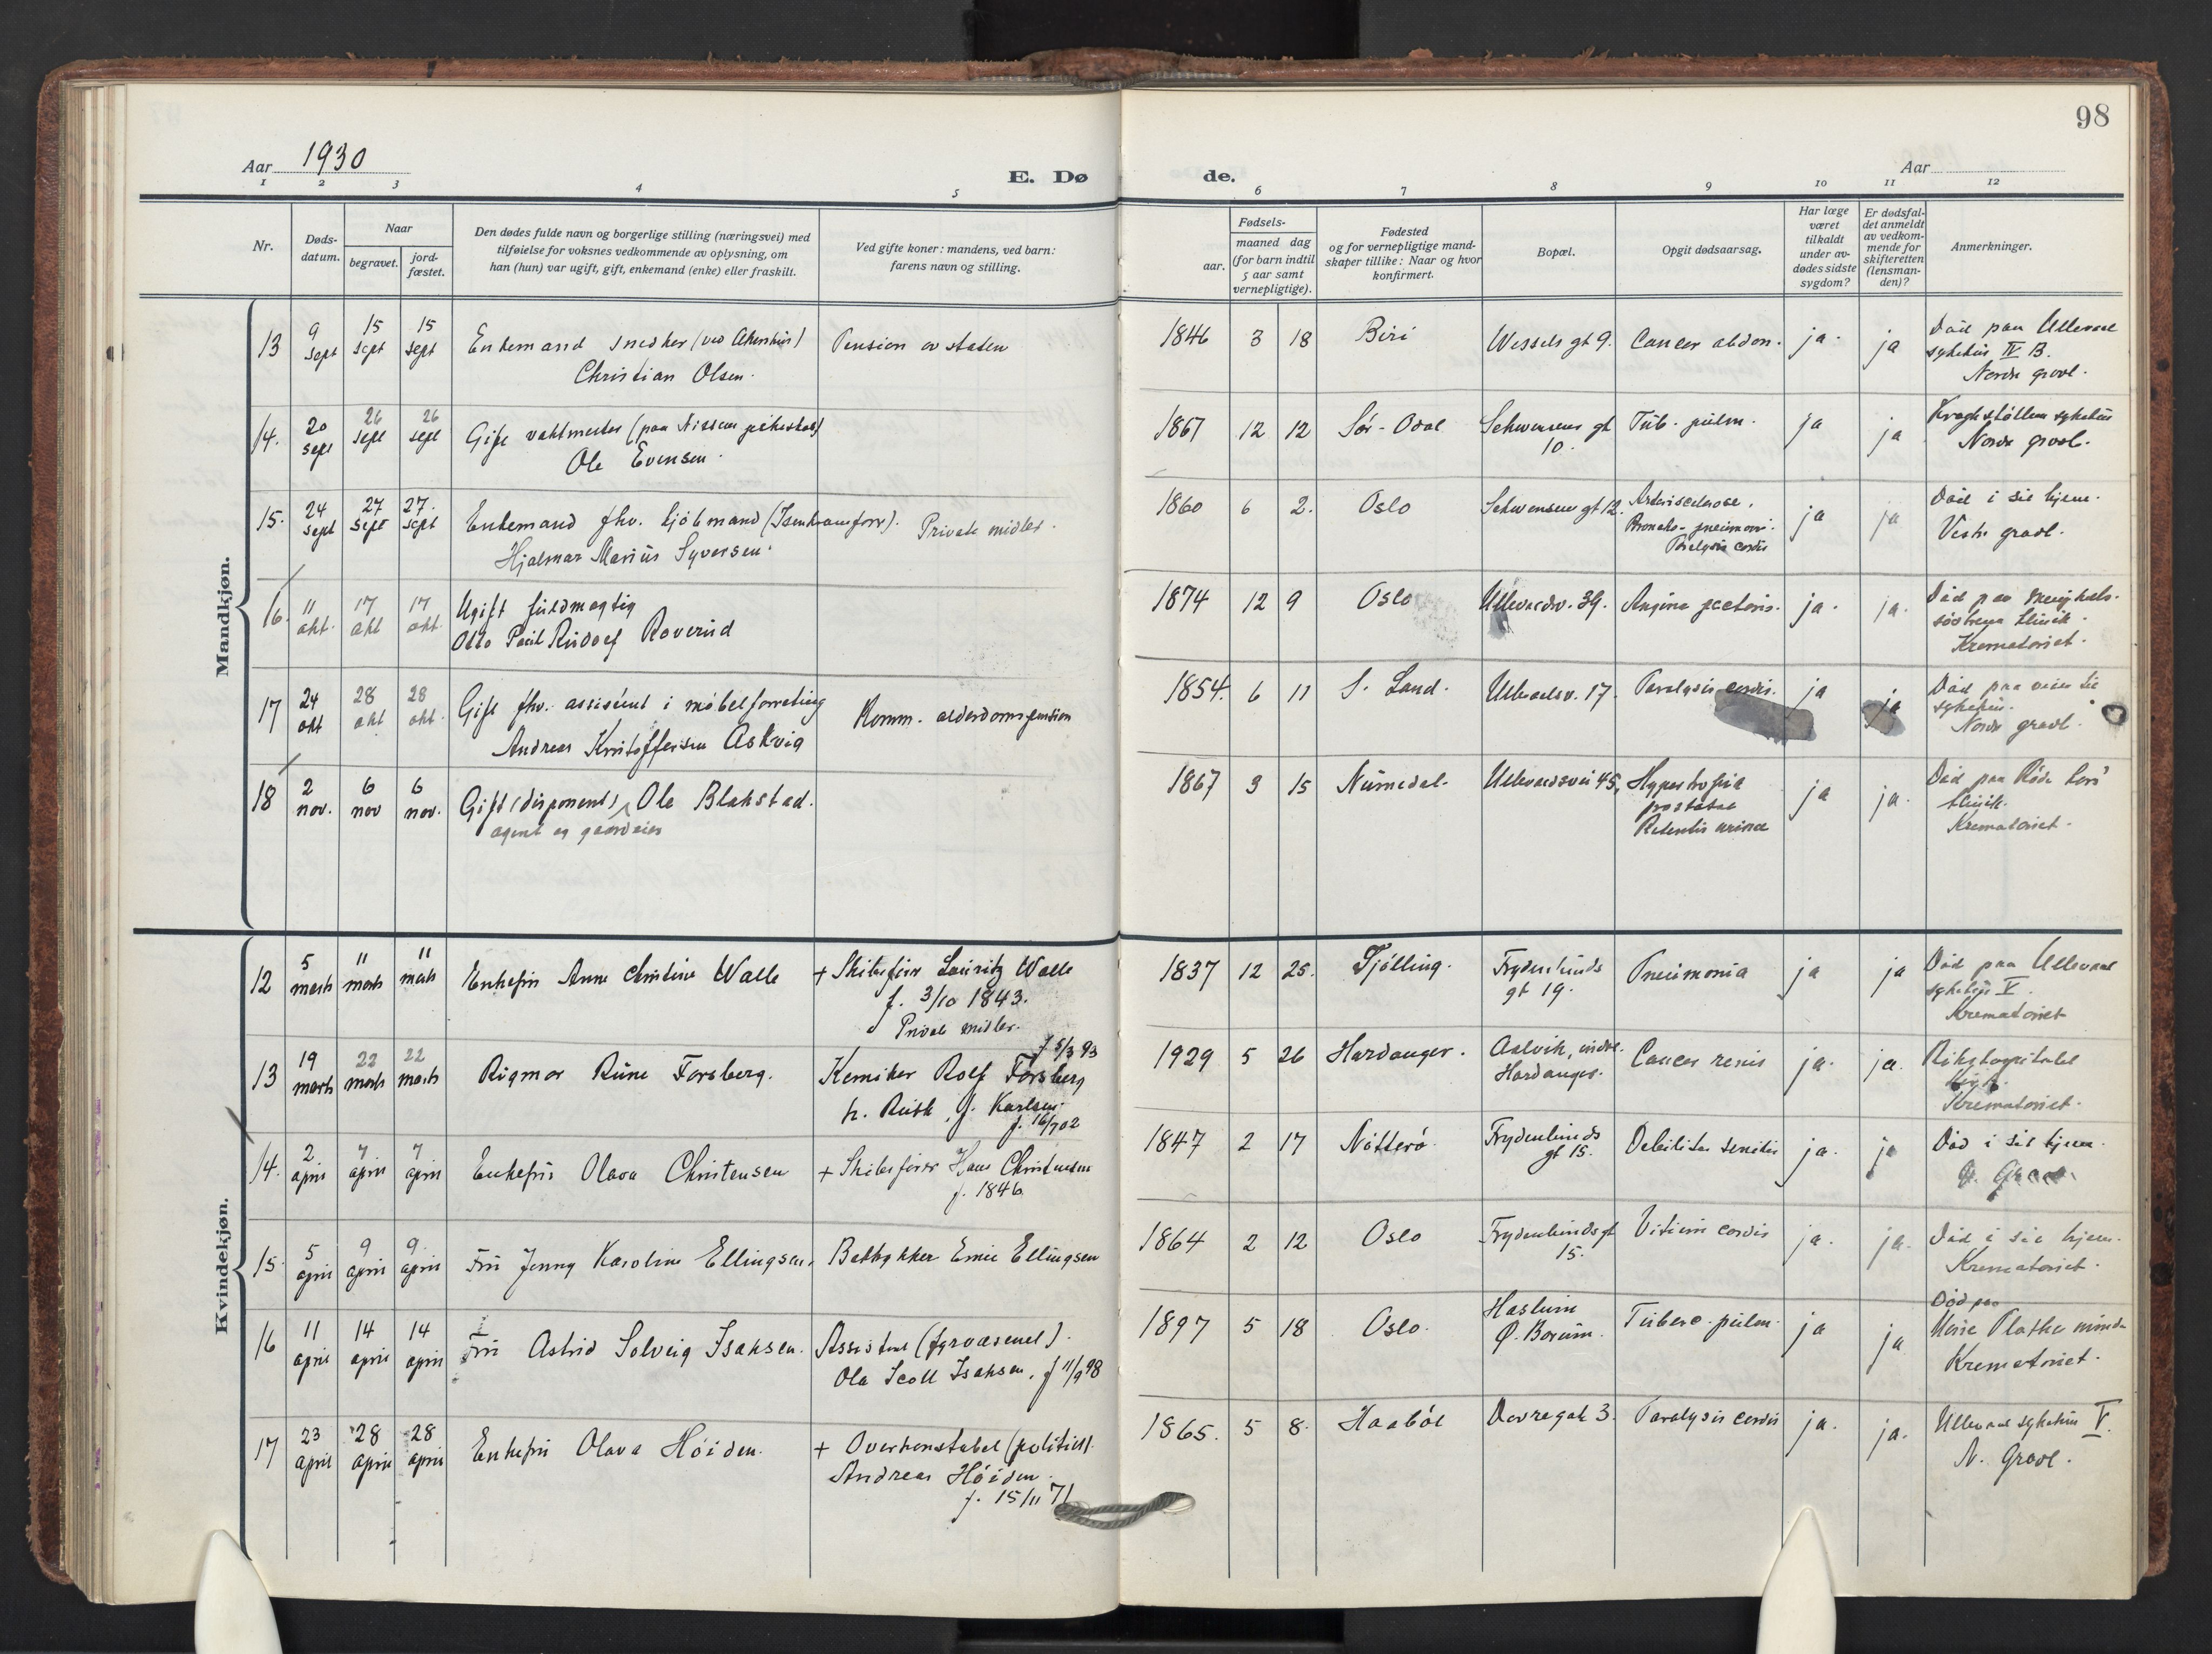 98
Aar 1930
E. Dø de.
Aar
1 2 3 4 5 6 7 8 9 10 11 12
Nr.
Døds-
datum.
Naar
begravet.
jord-
fæstet.
Den dødes fulde navn og borgerlige stilling (næringsvei) med
tilføielse for voksnes vedkommende av oplysning, om
han (hun) var ugift, gift, enkemand (enke) eller fraskilt.
Ved gifte koner: mandens, ved barn:
farens navn og stilling.
Fødsels-
aar.
maaned dag
(for barn indtil
5 aar samt
vernepligtige).
Fødested
og for vernepligtige mand-
skaper tillike: Naar og hvor
konfirmert.
Bopæl.
Opgit dødsaarsag.
Har læge
været
tilkaldt
under av-
dødes sidste
sygdom?
Er dødsfal-
det anmeldt
av vedkom-
mende for
skifteretten
(lensman-
den)?
Anmerkninger.
Mandkjøn.
13 9 sept 15 sept 15 sept Enkemand snedker (ved Akershus) Pension av staten 1846 3 18 Biri Wessels gt 9. Cancer abdom. ja. ja Død paa Ullevaal
Christian Olsen. sykehus IV B.
Nordre gravl.
14. 20 sept 26 sept 26 sept Gift vaktmester (paa Nissens pikeskole) 1867 12 12 Sør-Odal Schwensens gt 10. Tub. pulm. ja ja Kragstøtten sykehus
Ole Evensen. Nordre gravl.
15. 24 sept 27 sept 27. sept Enkemand fhv. kjøbmand (Isenkramforr). Private midler. 1860 6 2. Oslo Schwensens gt 12. Arteriosclerose. ja ja Død i sit hjem.
Hjalmar Marius Syversen. Broncho-pneumoni. Vestre gravl.
Paralysis cordis
16. 11 okt. 17 okt 17 okt. Ugift fuldmægtig 1874 12 9 Oslo Ullevaalsv. 39. Angina pectoris. ja. ja. Død paa Menighets-
Otto Paul Rudolf Roverud søstrenes klinik.
Krematoriet.
17 24 okt 28 okt 28 okt. Gift fhv. assistent i møbelforretning Komm. alderdomspension 1854. 6 11 S. Land. Ullevaalsv. 17. Paralysis cordis. ja ja Død paa veien til
Andreas Kristoffersen Askvig sykehus.
Nordre gravl.
18 2 nov. 6 nov 6 nov. Gift (disponent) Ole Blakstad. 1867 3 15 Numedal. Ullevaalsvei 45, Hypertrofia ja ja. Død paa Røde Kors'
agent og gaardeier prostatae klinik.
Retentio urinae Krematoriet.
Kvindekjøn.
12 5 marts 11 marts 11 marts Enkefru Anne Christine Walle + Skibsfører Lauritz Walle 1837 12 25. Tjølling. Frydenlunds gt 19. Pneumonia ja ja Død paa Ullevaal
f. 3/10 1843. sykehus V.
Private midler. Krematoriet
13 19 marts 22 marts 22 marts Rigmor Rune Forsberg. Kemiker Rolf Forsberg f 5/3 93 1929 5 26 Hardanger. Aalvik, indre Hardanger. Cancer renis ja. ja. Rikshospitalet
h. Ruth, f. Karlsen.
f. 16/7 02 Krematoriet.
14. 2 april 7 april 7 april Enkefru Olava Christensen + Skibsfører Hans Christensen 1847 2 17 Nøtterø. Frydenlunds gt 15. Debilitas senilis ja. ja Død i sit hjem.
f. 1846
15. 5 april 9 april 9. april Fru Jenny Karoline Ellingsen. Boktrykker Emil Ellingsen 1864 2 12 Oslo Frydenlunds gt 15. Vitium cordis ja. ja. Død i sit hjem.
Krematoriet.
16 11 april 14 april 14 april Fru Astrid Solveig Isaksen. Assistent (fyrvæsenet). 1897 5 18 Oslo. Haslum Ø. Bærum. Tuberc. pulm. ja ja Død paa
Ola Scott Isaksen, f 11/9 98 Plathes minde
Krematoriet.
17 23 april 28 april 28 april Enkefru Olava Høiden. + Overkonstabel (politiet). 1865. 5 8. Haabøl Dovregate 3. Paralysis cordis ja. ja. Ullevaal sykehus V.
Andreas Høiden. N. Gravl.
f. 15/11 71